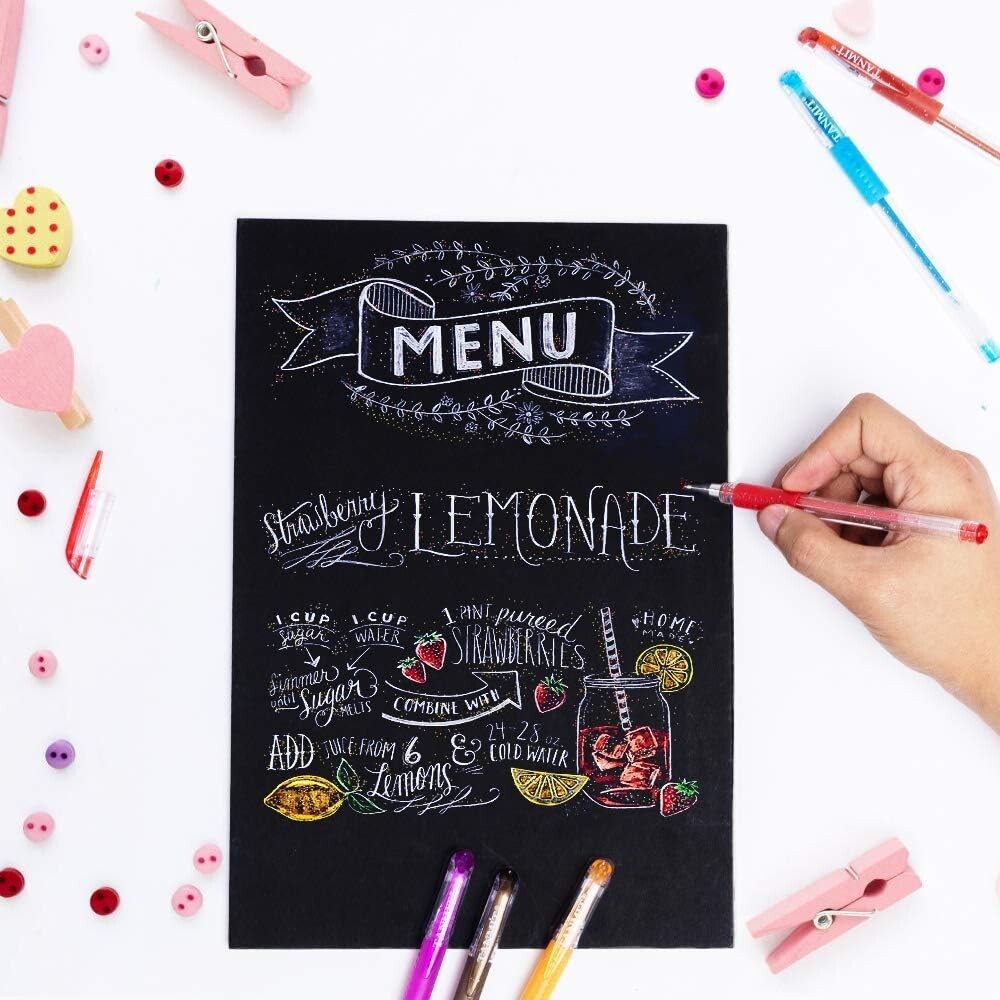 TANMIT
TANMIT
MENU
Strawberry LEMONADE
1 CUP sugar
1 CUP WATER
1 PINT pureed STRAWBERRIES
HOME MADE
Simmer until Sugar MELTS
COMBINE WITH
ADD JUICE FROM 6 Lemons
& 24-28 oz COLD WATER